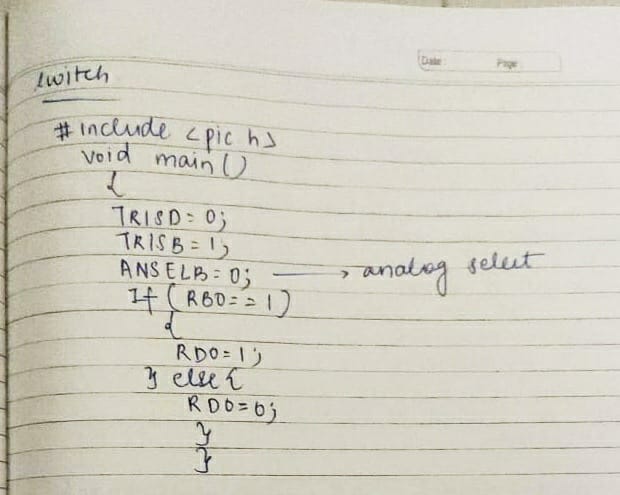 Date Page
switch
#include <pic h>
void main()
{
TRISD = 0;
TRISB = 1;
ANSELB = 0; → analog select
If (RB0 = = 1)
{
RD0 = 1;
} else {
RD0 = 0;
}
}